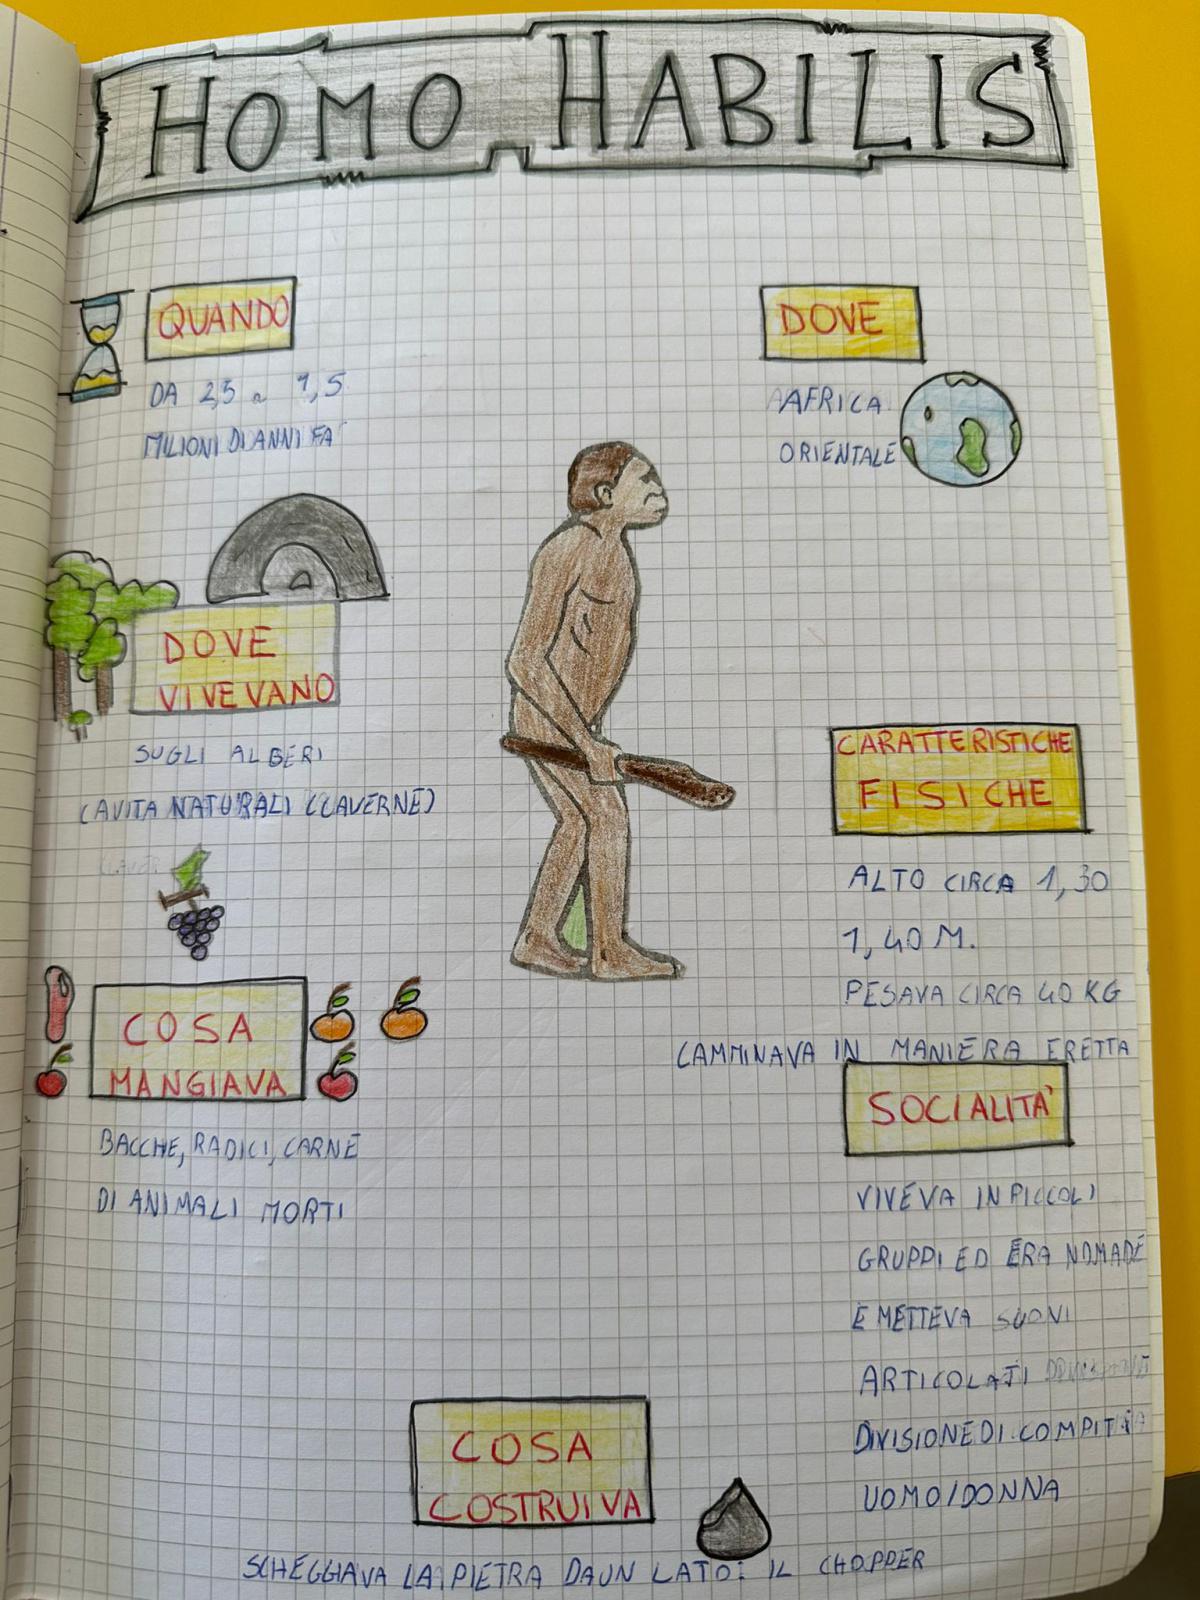 HOMO HABILIS
QUANDO
DA 2,5 a 1,5
MILIONI DI ANNI FA
DOVE
AFRICA
ORIENTALE
DOVE
VIVEVANO
SUGLI ALBERI
CAVITA NATURALI (CAVERNE)
CARATTERISTICHE
FISICHE
ALTO CIRCA 1,30
1,40 M.
PESAVA CIRCA 40 KG
CAMMINAVA IN MANIERA ERETTA
COSA
MANGIAVA
BACCHE, RADICI, CARNE
DI ANIMALI MORTI
SOCIALITA'
VIVEVA IN PICCOLI
GRUPPI ED ERA NOMADE
EMETTEVA SUONI
ARTICOLATI
DIVISIONE DI COMPITI
UOMO/DONNA
COSA
COSTRUIVA
SCHEGGIAVA LA PIETRA DA UN LATO: IL CHOPPER